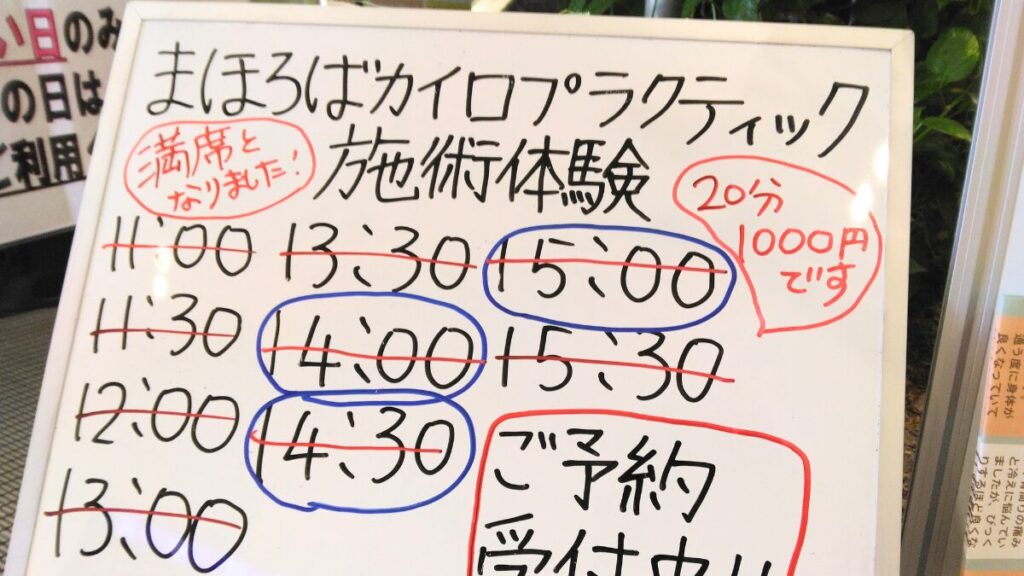 まほろばカイロプラクティック
施術体験
満席と
なりました!
20分
1000円
です
11:00
11:30
12:00
13:00
13:30
14:00
14:30
15:00
15:30
ご予約
受付中!!
い日のみ
の日は
ご利用
通う度に身体が
良くなっていて
と冷えに悩んでい
ましたが、びっく
りするほど良くな